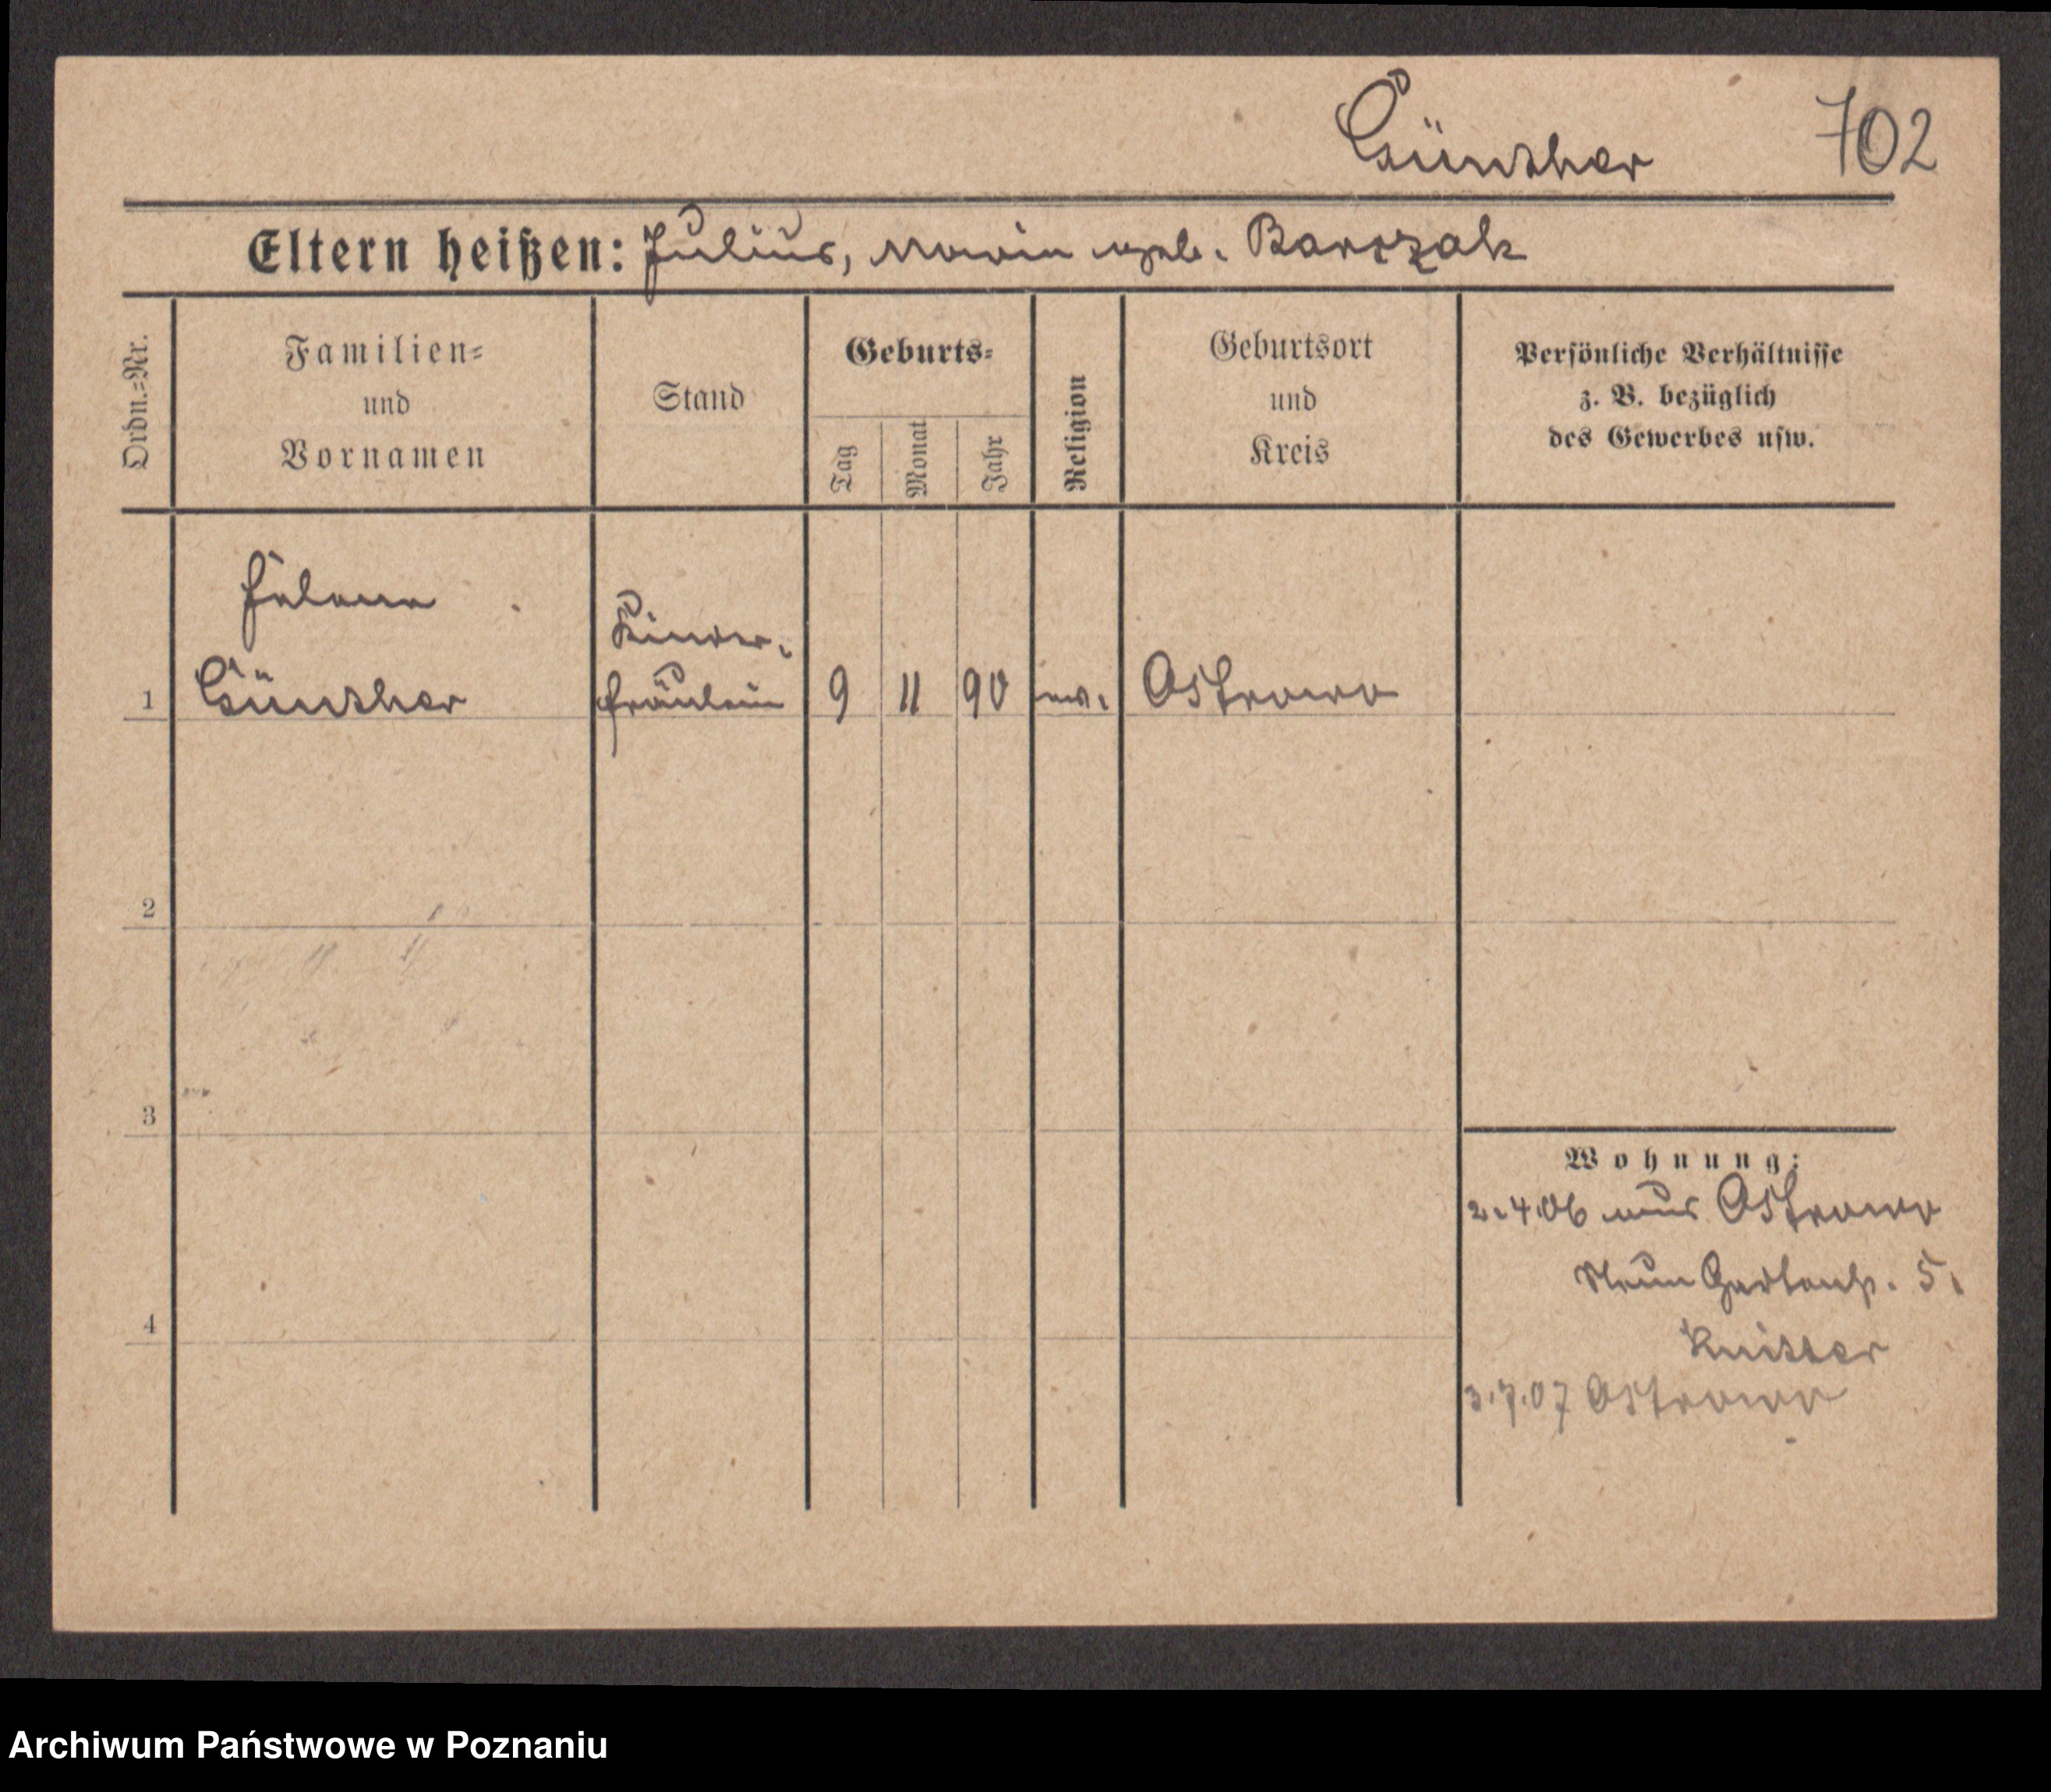 Günther 702
Eltern heißen: Julius, Maria geb. Barczak
Ordn.=Nr.
Familien=
und
Vornamen
Stand
Geburts=
Tag
Monat
Jahr
Religion
Geburtsort
und
Kreis
Persönliche Verhältnisse
z. B. bezüglich
des Gewerbes usw.
Helene
Günther
Kinder-
fräulein
1
9 11 90 ev. Ostrowo
2
3
4
Wohnung:
2.4.06 aus Ostrowo
Neue Gartenstr. 5.
Knitter
3.7.07 Ostrowo
Archiwum Państwowe w Poznaniu